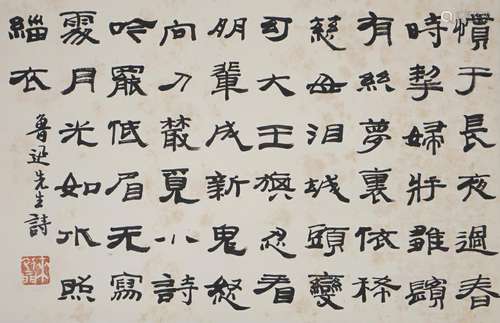 慣于長夜過春
時挈婦将雛鬢
有絲夢裏依稀
慈母泪城頭變
幻大王旗忍看
朋輩成新鬼怒
向刀叢覓小詩
吟罷低眉无寫
處月光如水照
緇衣
魯迅先生詩